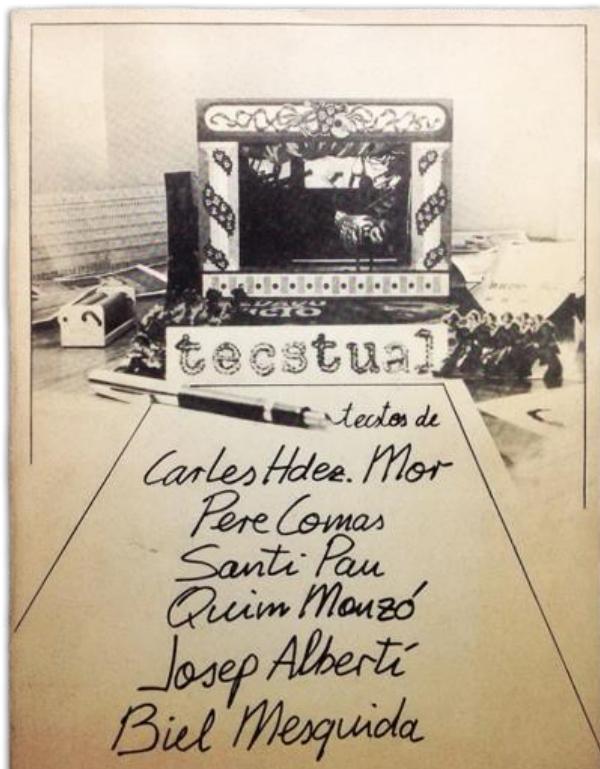 tecstual
tectos de
Carles Hdez. Mor
Pere Comas
Santi Pau
Quim Monzó
Josep Albertí
Biel Mesquida